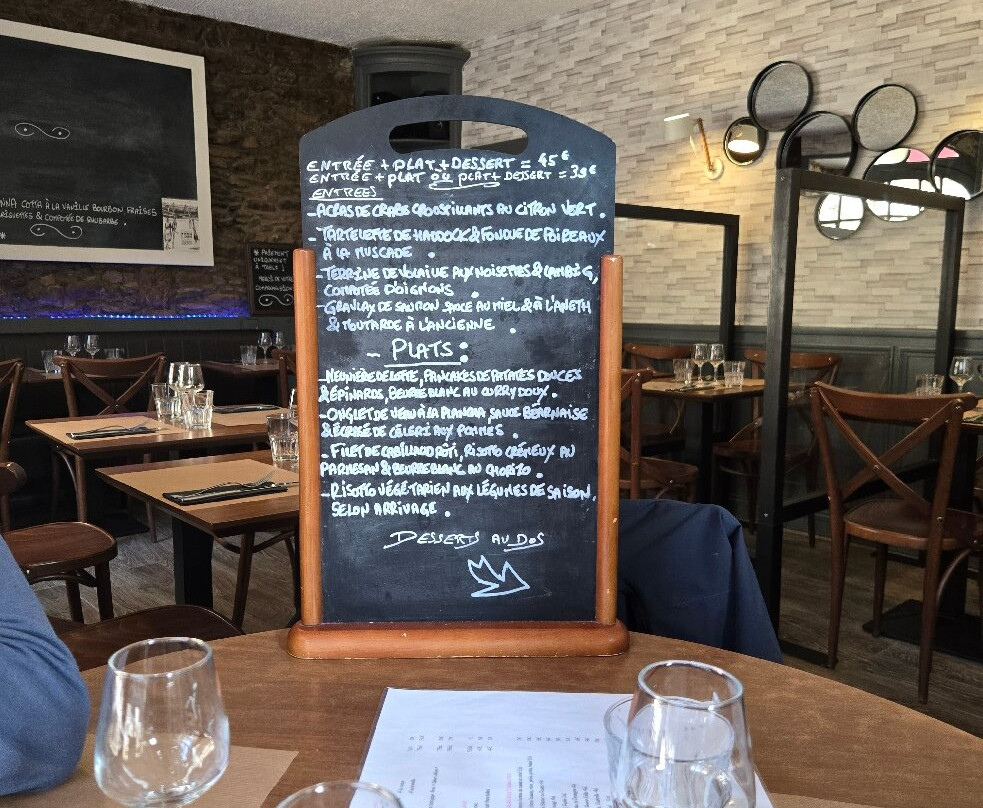 ENTRÉE + PLAT + DESSERT = 45€
ENTRÉE + PLAT OU PLAT + DESSERT = 39€
ENTREES
- ACRAS DE CRABE CROUSTILLANTS AU CITRON VERT.
- TARTELETTE DE HADDOCK & FONDUE DE POIREAUX
À LA MUSCADE.
- TERRINE DE VOLAILLE AUX NOISETTES & LAMBIG,
COMPOTÉE D'OIGNONS.
- GRAVLAX DE SAUMON SAUCE AU MIEL & À L'ANETH
& MOUTARDE À L'ANCIENNE.
- PLATS :
- MEUNIÈRE DE LOTTE, PANCAKES DE PATATES DOUCES
& ÉPINARDS, BEURRE BLANC AU CURRY DOUX.
- ONGLET DE VEAU À LA PLANCHA SAUCE BÉARNAISE
& ÉCRASÉ DE CÉLERI AUX POMMES.
- FILET DE CABILLAUD RÔTI, RISOTTO CRÉMEUX AU
PARMESAN & BEURRE BLANC AU CHORIZO.
- RISOTTO VÉGÉTARIEN AUX LÉGUMES DE SAISON,
SELON ARRIVAGE.
DESSERTS AU DOS
NNA COTTA À LA VANILLE BOURBON FRAISES
& COMPOTÉE DE RHUBARBE.
* PAIEMENT
UNIQUEMENT
À TABLE !